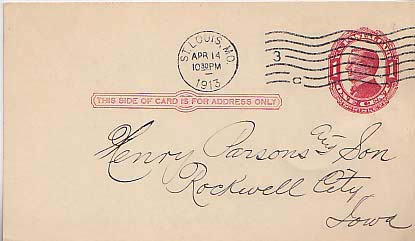 ST. LOUIS, MO.
APR 14
10 30 PM
1913
3
C
1
1
ONE CENT
THIS SIDE OF CARD IS FOR ADDRESS ONLY
Henry Parsons and Son
Rockwell City
Iowa